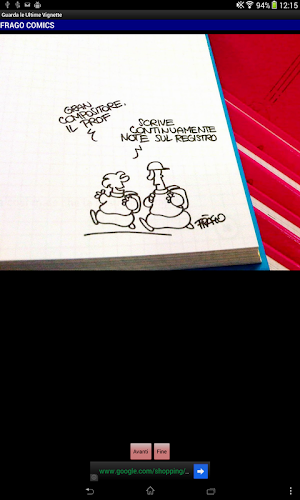 94% 12:15
Guarda le Ultime Vignette
FRAGO COMICS
GRAN
COMPOSITORE.
IL PROF
SCRIVE
CONTINUAMENTE
NOTE SUL REGISTRO
FRAGO
Avanti Fine
www.google.com/shopping/...